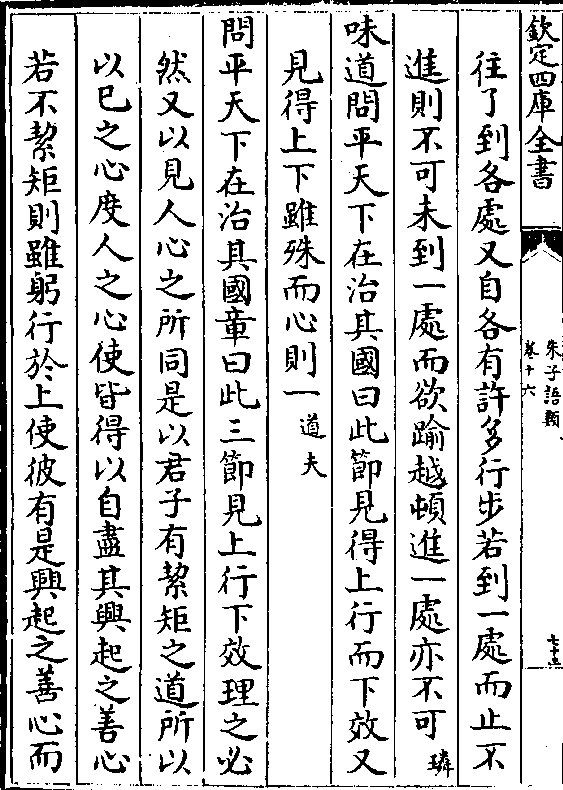 欽定四庫全書
朱子語類
卷十六
七十五
往了到各處又自各有許多行步若到一處而止不
進則不可未到一處而欲踰越頓進一處亦不可璘
味道問平天下在治其國曰此節見得上行而下效又
見得上下雖殊而心則一道夫
問平天下在治其國章曰此三節見上行下效理之必
然又以見人心之所同是以君子有絜矩之道所以
以已之心度人之心使皆得以自盡其興起之善心
若不絜矩則雖躬行於上使彼有是興起之善心而